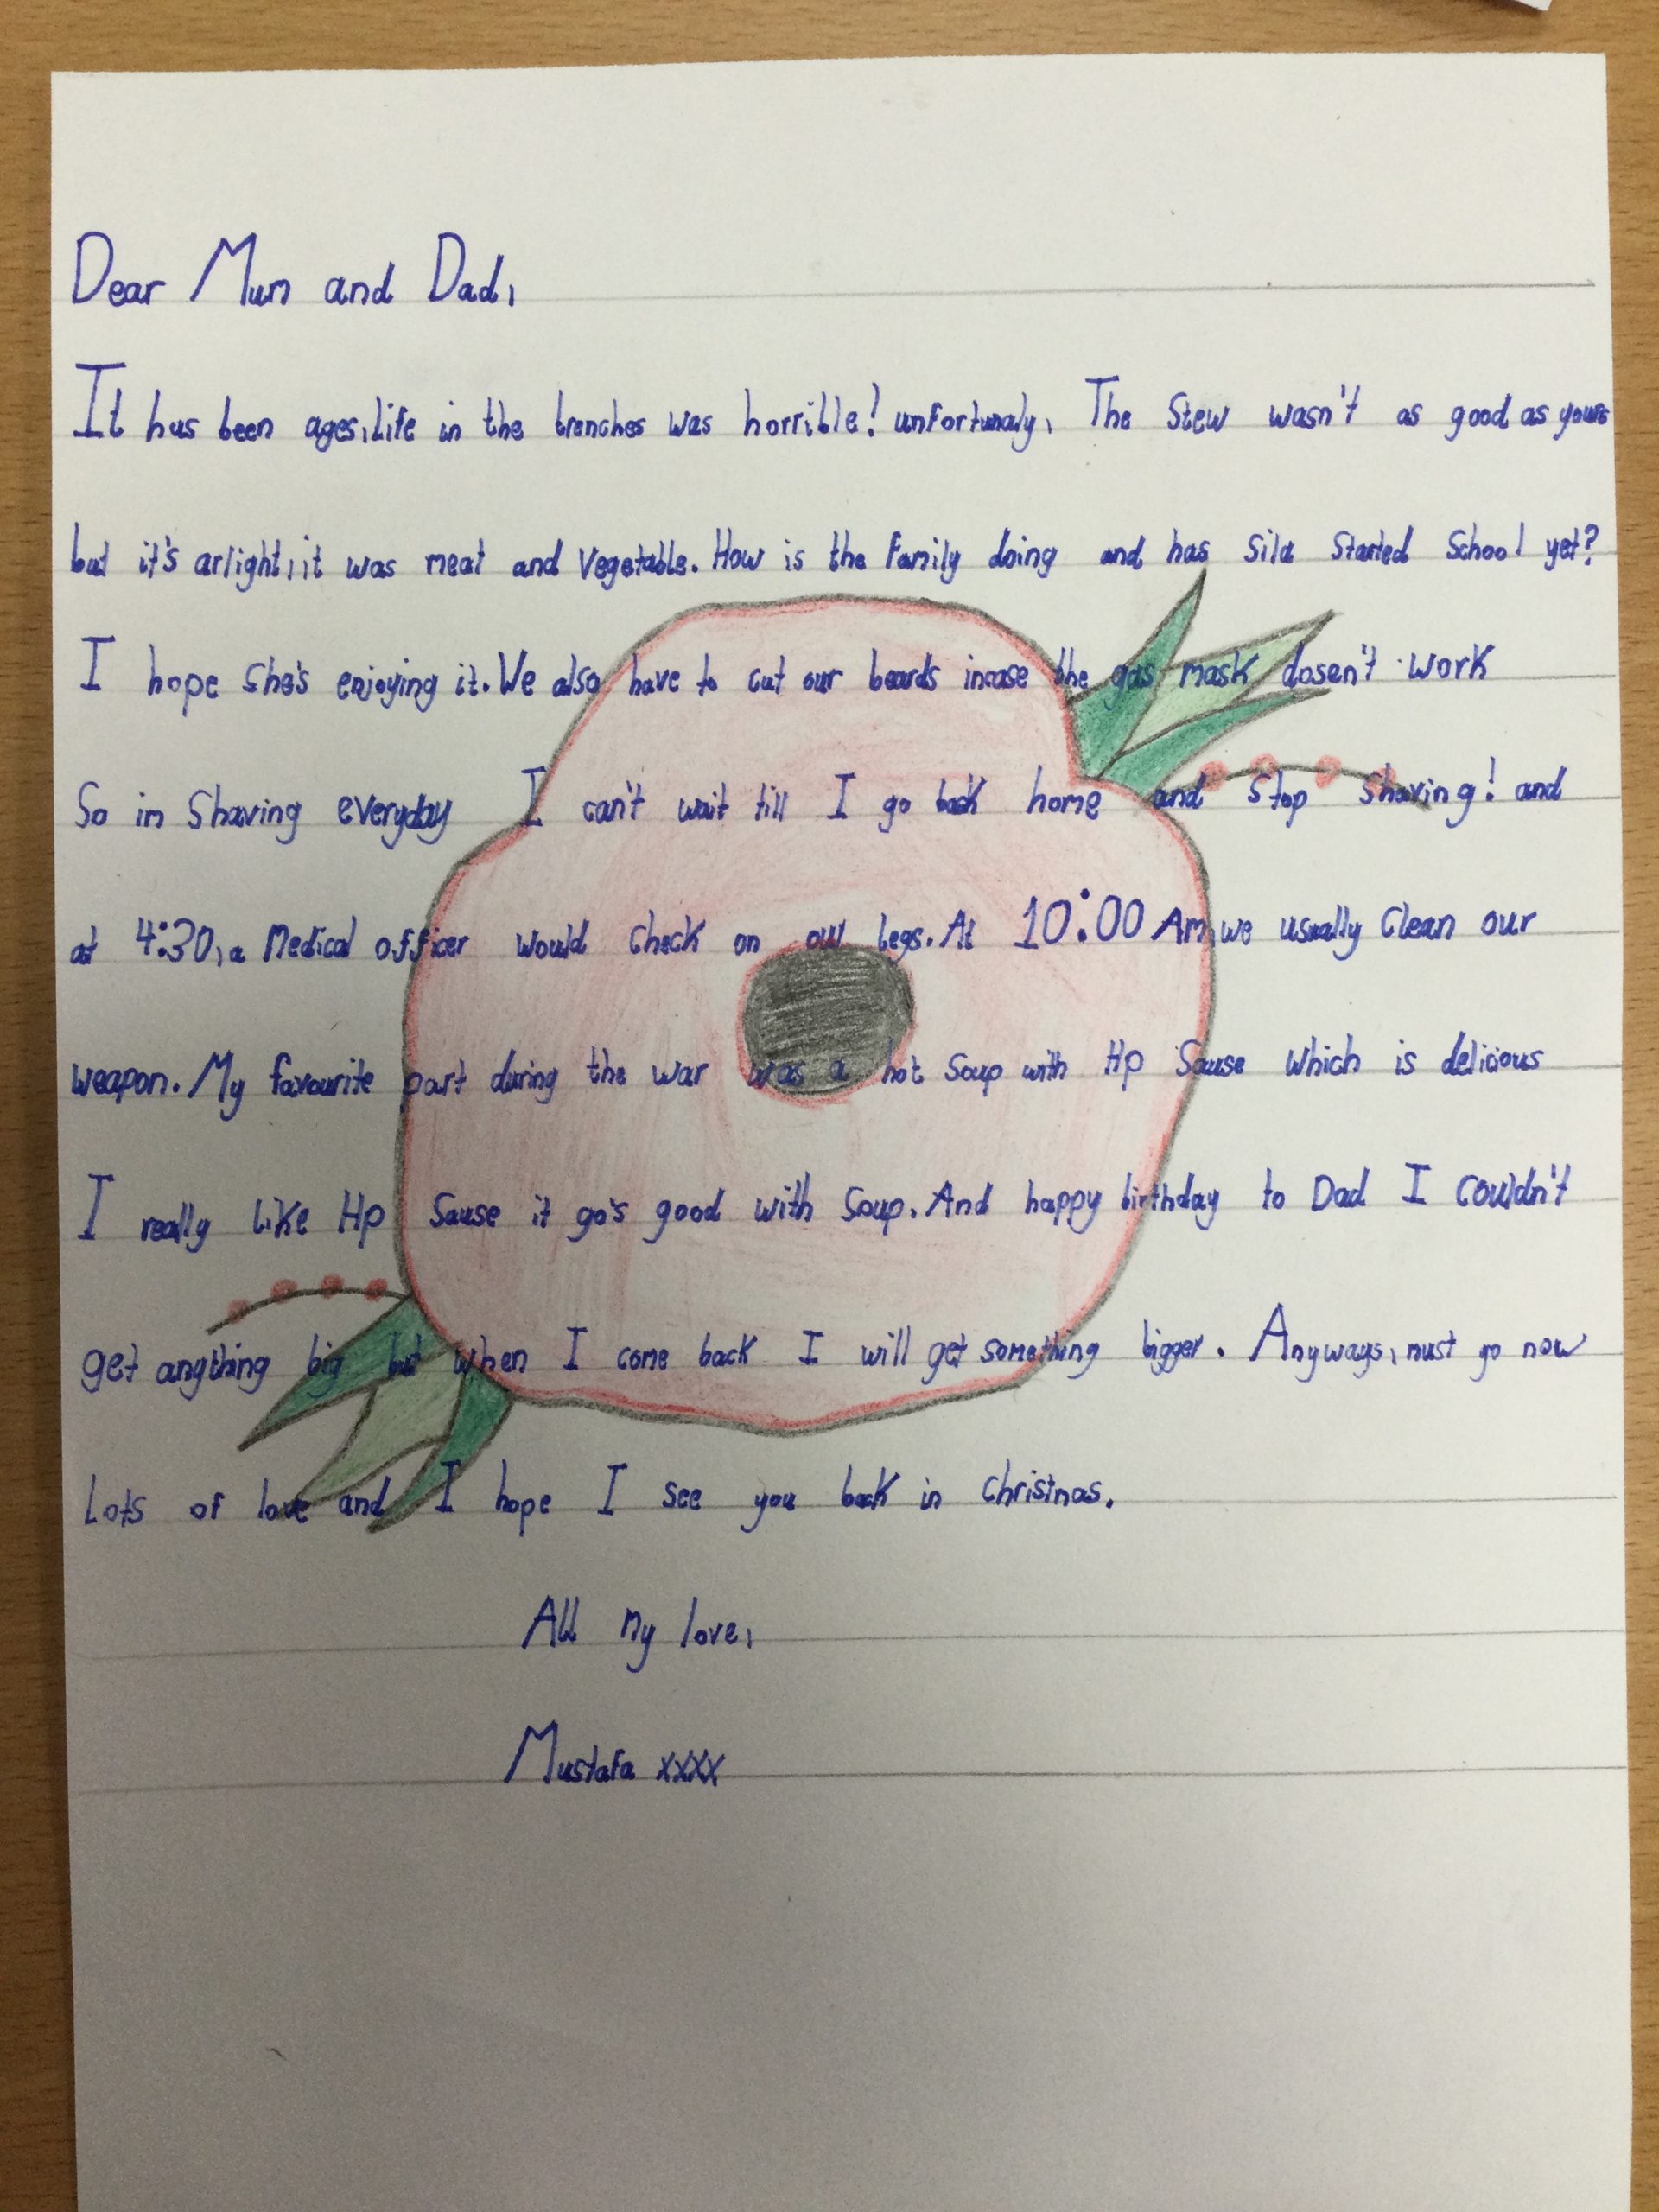 Dear Mum and Dad,
It has been ages, Life in the trenches was horrible! unfortunaly, The Stew wasn't as good as yours
but it's arlight, it was meat and Vegetable. How is the Family doing and has Sila Started School yet?
I hope She's enjoying it. We also have to cut our beards incase the gas mask dosen't work
So im Shaving everyday I can't wait till I go back home and Stop Shaving! and
at 4:30, a Medical officer would check on our legs. At 10:00 Am, we usually Clean our
weapon. My favourite part during the war was a hot Soup with Hp Sause Which is delicious
I really like Hp Sause it go's good with Soup. And happy birthday to Dad I couldn't
get anything big but when I come back I will get something bigger. Anyways, must go now
Lots of love and I hope I see you back in christmas.
All my love,
Mustafa xxxx